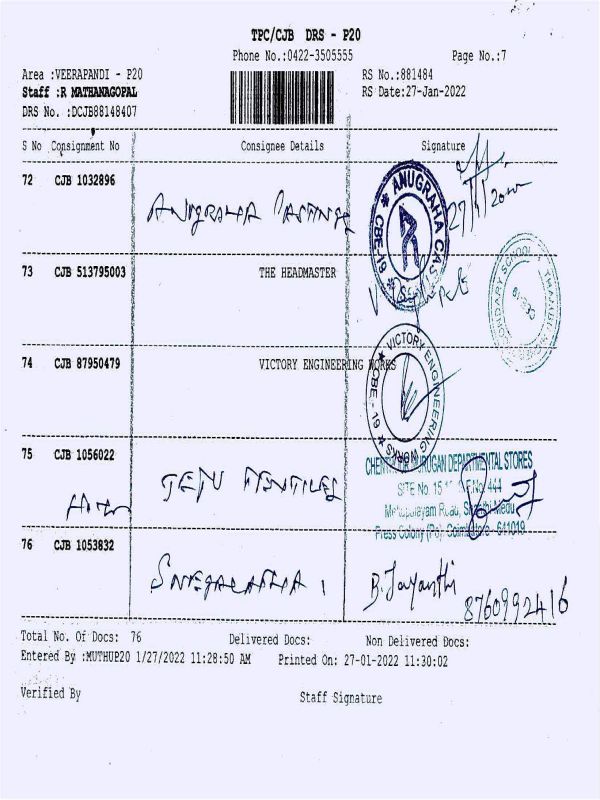 TPC/CJB DRS - P20
Phone No.:0422-3505555
Page No.:7
Area :VEERAPANDI - P20
RS No.:881484
Staff :R MATHANAGOPAL
RS Date:27-Jan-2022
DRS No. :DCJB88148407
S No Consignment No Consignee Details Signature
72 CJB 1032896
ANUGRAHA CASTINGS
ANUGRAHA CAS
CBE-19
73 CJB 513795003 THE HEADMASTER
74 CJB 87950479 VICTORY ENGINEERING WORKS
VICTORY ENGINEERING WORKS
CBE - 19
75 CJB 1056022
MURUGAN DEPARTMENTAL STORES
SITE No. 15
444
Press Colony (Po), Coimbatore - 641019
76 CJB 1053832
B. Jayanthi
8760992416
Total No. Of Docs: 76 Delivered Docs: Non Delivered Docs:
Entered By :MUTHUP20 1/27/2022 11:28:50 AM Printed On: 27-01-2022 11:30:02
Verified By Staff Signature